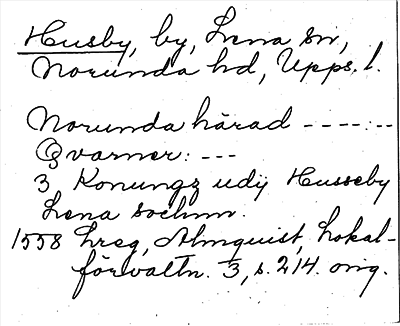 Husby, by, Lena sn,
Norunda hd, Upps. l.
Norunda härad -----:--
Qvarner: ---
3 Konungz udij Husseby
Lena sochnn.
1558 Lreg, Almquist, Lokal-
förvaltn. 3, s. 214. orig.